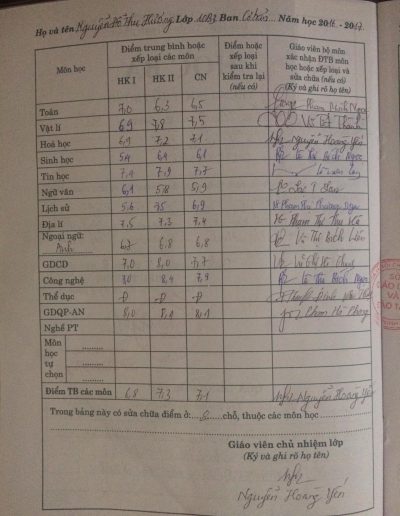 Họ và tên Nguyễn Hồ Thu Hương Lớp 10B3 Ban Cơ bản Năm học 2016 - 2017
Môn học
Điểm trung bình hoặc xếp loại các môn
HK I HK II CN
Điểm hoặc xếp loại sau khi kiểm tra lại (nếu có)
Giáo viên bộ môn xác nhận ĐTB môn học hoặc xếp loại và sửa chữa (nếu có)
(Ký và ghi rõ họ tên)
Toán 7,0 6,3 6,5 Phạm Minh Ngọc
Vật lí 6,9 7,8 7,5
Hoá học 6,9 7,2 7,1 Nguyễn Hoàng Yến
Sinh học 5,4 6,4 6,1
Tin học 7,4 7,9 7,7
Ngữ văn 6,1 5,8 5,9
Lịch sử 5,6 7,5 6,9
Địa lí 7,5 7,3 7,4
Ngoại ngữ: Anh 6,7 6,8 6,8 Võ Thị Bích Liên
GDCD 7,0 8,0 7,7
Công nghệ 8,4 7,9
Thể dục Đ Đ Đ
GDQP-AN 8,0 8,1 8,1
Nghề PT
Môn học tự chọn
Điểm TB các môn 6,8 7,3 7,1 Nguyễn Hoàng Yến
Trong bảng này có sửa chữa điểm ở: chỗ, thuộc các môn học
Giáo viên chủ nhiệm lớp
(Ký và ghi rõ họ tên)
Nguyễn Hoàng Yến